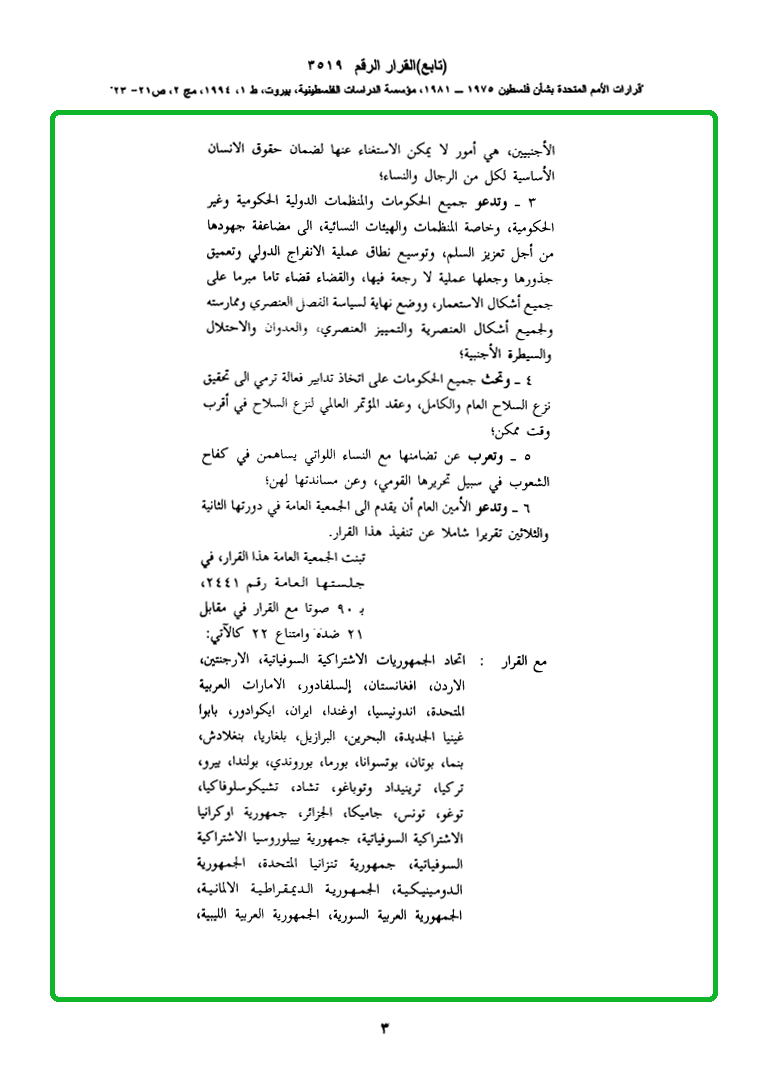 (تابع)القرار الرقم ٣٥١٩
قرارات الأمم المتحدة بشأن فلسطين ١٩٧٥ – ١٩٨١، مؤسسة الدراسات الفلسطينية، بيروت، ط ١، ١٩٩٤، مج ٢، ص٢١- ٢٣.
الأجنبيين، هي أمور لا يمكن الاستغناء عنها لضمان حقوق الانسان
الأساسية لكل من الرجال والنساء؛
٣ ـ وتدعو جميع الحكومات والمنظمات الدولية الحكومية وغير
الحكومية، وخاصة المنظمات والهيئات النسائية، الى مضاعفة جهودها
من أجل تعزيز السلم، وتوسيع نطاق عملية الانفراج الدولي وتعميق
جذورها وجعلها عملية لا رجعة فيها، والقضاء قضاء تاما مبرما على
جميع أشكال الاستعمار، ووضع نهاية لسياسة الفصل العنصري وممارسته
ولجميع أشكال العنصرية والتمييز العنصري، والعدوان والاحتلال
والسيطرة الأجنبية؛
٤ ـ وتحث جميع الحكومات على اتخاذ تدابير فعالة ترمي الى تحقيق
نزع السلاح العام والكامل، وعقد المؤتمر العالمي لنزع السلاح في أقرب
وقت ممكن؛
٥ ـ وتعرب عن تضامنها مع النساء اللواتي يساهمن في كفاح
الشعوب في سبيل تحريرها القومي، وعن مساندتها لهن؛
٦ ـ وتدعو الأمين العام أن يقدم الى الجمعية العامة في دورتها الثانية
والثلاثين تقريرا شاملا عن تنفيذ هذا القرار.
تبنت الجمعية العامة هذا القرار، في
جلستها العامة رقم ٢٤٤١،
بـ ٩٠ صوتا مع القرار في مقابل
٢١ ضده وامتناع ٢٢ كالآتي:
مع القرار : اتحاد الجمهوريات الاشتراكية السوفياتية، الارجنتين،
الاردن، افغانستان، إلسلفادور، الامارات العربية
المتحدة، اندونيسيا، اوغندا، ايران، ايكوادور، بابوا
غينيا الجديدة، البحرين، البرازيل، بلغاريا، بنغلادش،
بنما، بوتان، بوتسوانا، بورما، بوروندي، بولندا، بيرو،
تركيا، ترينيداد وتوباغو، تشاد، تشيكوسلوفاكيا،
توغو، تونس، جاميكا، الجزائر، جمهورية اوكرانيا
الاشتراكية السوفياتية، جمهورية بييلوروسيا الاشتراكية
السوفياتية، جمهورية تنزانيا المتحدة، الجمهورية
الدومينيكية، الجمهورية الديمقراطية الالمانية،
الجمهورية العربية السورية، الجمهورية العربية الليبية،
٣